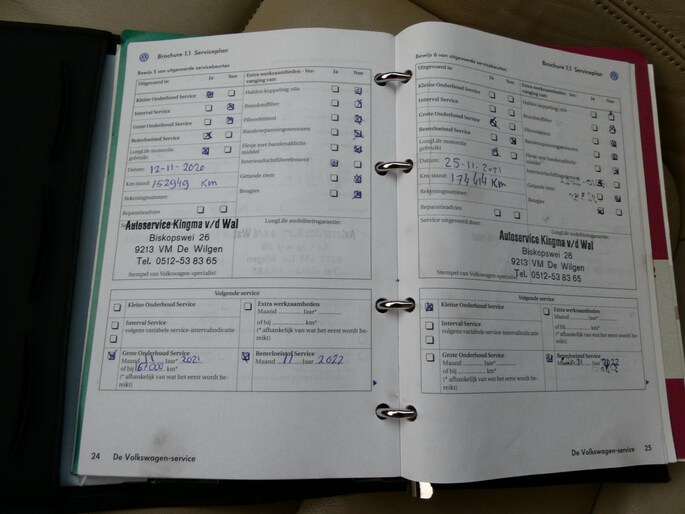 Brochure 1.1 Serviceplan
Bewijs 5 van uitgevoerde servicebeurten
Uitgevoerd is:
Ja
Nee
Extra werkzaamheden - Ver-
vanging van:
Ja
Nee
Kleine Onderhoud Service
Interval Service
Grote Onderhoud Service
Remvloeistof Service
LongLife motorolie
gebruikt
Haldex-koppeling: olie
Brandstoffilter
Pollenfilter
Getande riem
Bougies
Datum: 12-11-2020
Km-stand: 152949 Km
Rekeningnummer:
Reparatieadvies
LongLife mobiliteitsgarantie:
Autoservice Kingma v/d Wal
Biskopswei 26
9213 VM De Wilgen
Tel. 0512-53 83 65
Stempel van Volkswagen-specialist
Volgende service
Kleine Onderhoud Service
Extra werkzaamheden
Maand Jaar*
of bij km*
(* afhankelijk van wat het eerst wordt be-
reikt)
Interval Service
volgens variabele service-intervalindicatie
Grote Onderhoud Service
Maand 11 Jaar* 2021
of bij 167.000 km*
(* afhankelijk van wat het eerst wordt be-
reikt)
Remvloeistof Service
Maand 11 Jaar 2022
24 De Volkswagen-service
Bewijs 6 van uitgevoerde servicebeurten
Brochure 1.1 Serviceplan
Uitgevoerd is:
Ja
Nee
Extra werkzaamheden - Ver-
vanging van:
Ja
Nee
Kleine Onderhoud Service
Interval Service
Grote Onderhoud Service
Remvloeistof Service
LongLife motorolie
gebruikt
Haldex-koppeling: olie
Brandstoffilter
Pollenfilter
Getande riem
Bougies
Datum: 25-11-2021
Km-stand: 174414 Km
Rekeningnummer:
Reparatieadvies
Service uitgevoerd door:
LongLife mobiliteitsgarantie:
Autoservice Kingma v/d Wal
Biskopswei 26
9213 VM De Wilgen
Tel. 0512-53 83 65
Stempel van Volkswagen-specialist
Volgende service
Kleine Onderhoud Service
Extra werkzaamheden
Maand Jaar*
of bij km*
(* afhankelijk van wat het eerst wordt be-
reikt)
Interval Service
volgens variabele service-intervalindicatie
Grote Onderhoud Service
Maand Jaar*
of bij km*
(* afhankelijk van wat het eerst wordt bereikt)
Remvloeistof Service
Jaar 2022
De Volkswagen-service 25